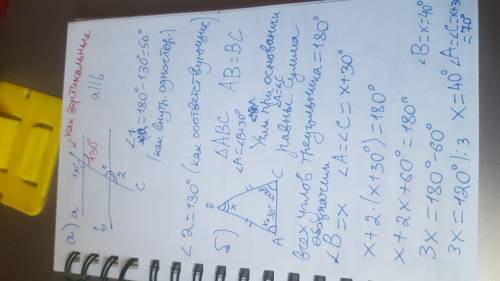 а) a 130° как вертикальные
a||b
b 1 2 c
∠1 = 180° - 130° = 50°
(как внутр. односторон.)
∠2 = 130° (как соответствующие).
б) △ABC AB = BC
B x A x+30° C
∠A = ∠B + 30°
Углы при основании
равны ∠A = ∠C Сумма
всех углов треугольника = 180°
обозначим
∠B = x ∠A = ∠C = x + 30°
x + 2·(x + 30°) = 180°
x + 2x + 60° = 180°
3x = 180° - 60°
3x = 120° |:3 x = 40°
∠B = x = 40°
∠A = ∠C = x + 30° = 70°